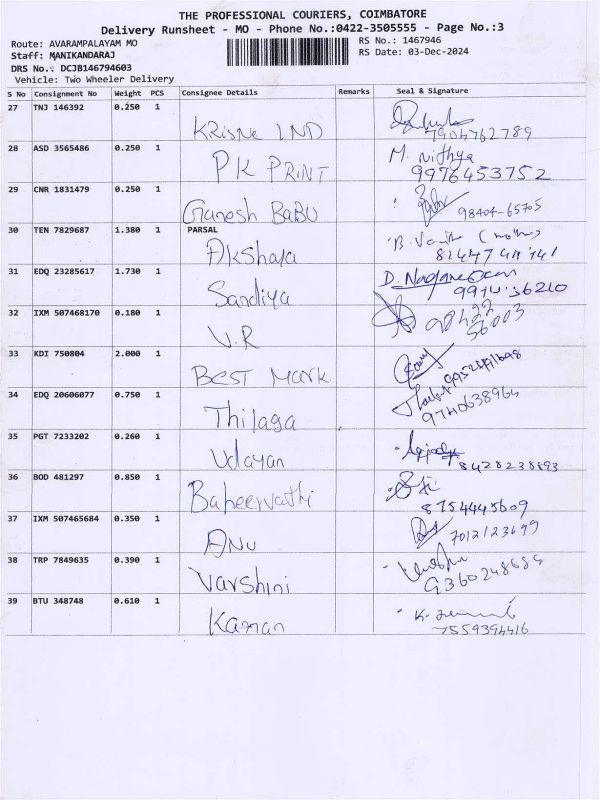 THE PROFESSIONAL COURIERS, COIMBATORE
Delivery Runsheet - MO - Phone No.:0422-3505555 - Page No.:3
Route: AVARAMPALAYAM MO
RS No.: 1467946
Staff: MANIKANDARAJ
RS Date: 03-Dec-2024
DRS No.: DCJB146794603
Vehicle: Two Wheeler Delivery
S No Consignment No Weight PCS Consignee Details Remarks Seal & Signature
27 TNJ 146392 0.250 1
Krisne IND 7904762789
28 ASD 3565486 0.250 1 M. Nithya
PK PRINT 9976453752
29 CNR 1831479 0.250 1
Ganesh BaBU 98404-65705
30 TEN 7829687 1.380 1 PARSAL
Akshaya
31 EDQ 23285617 1.730 1
Sandiya
32 IXM 507468170 0.180 1
V.R 98422 56003
33 KDI 750804 2.000 1
BEST Mark
34 EDQ 20606077 0.750 1
Thilaga 9740638964
35 PGT 7233202 0.260 1
Udayan
36 BOD 481297 0.850 1
8754445609
37 IXM 507465684 0.350 1
ANU 7012123699
38 TRP 7849635 0.390 1
Varshini
39 BTU 348748 0.610 1
7559394416